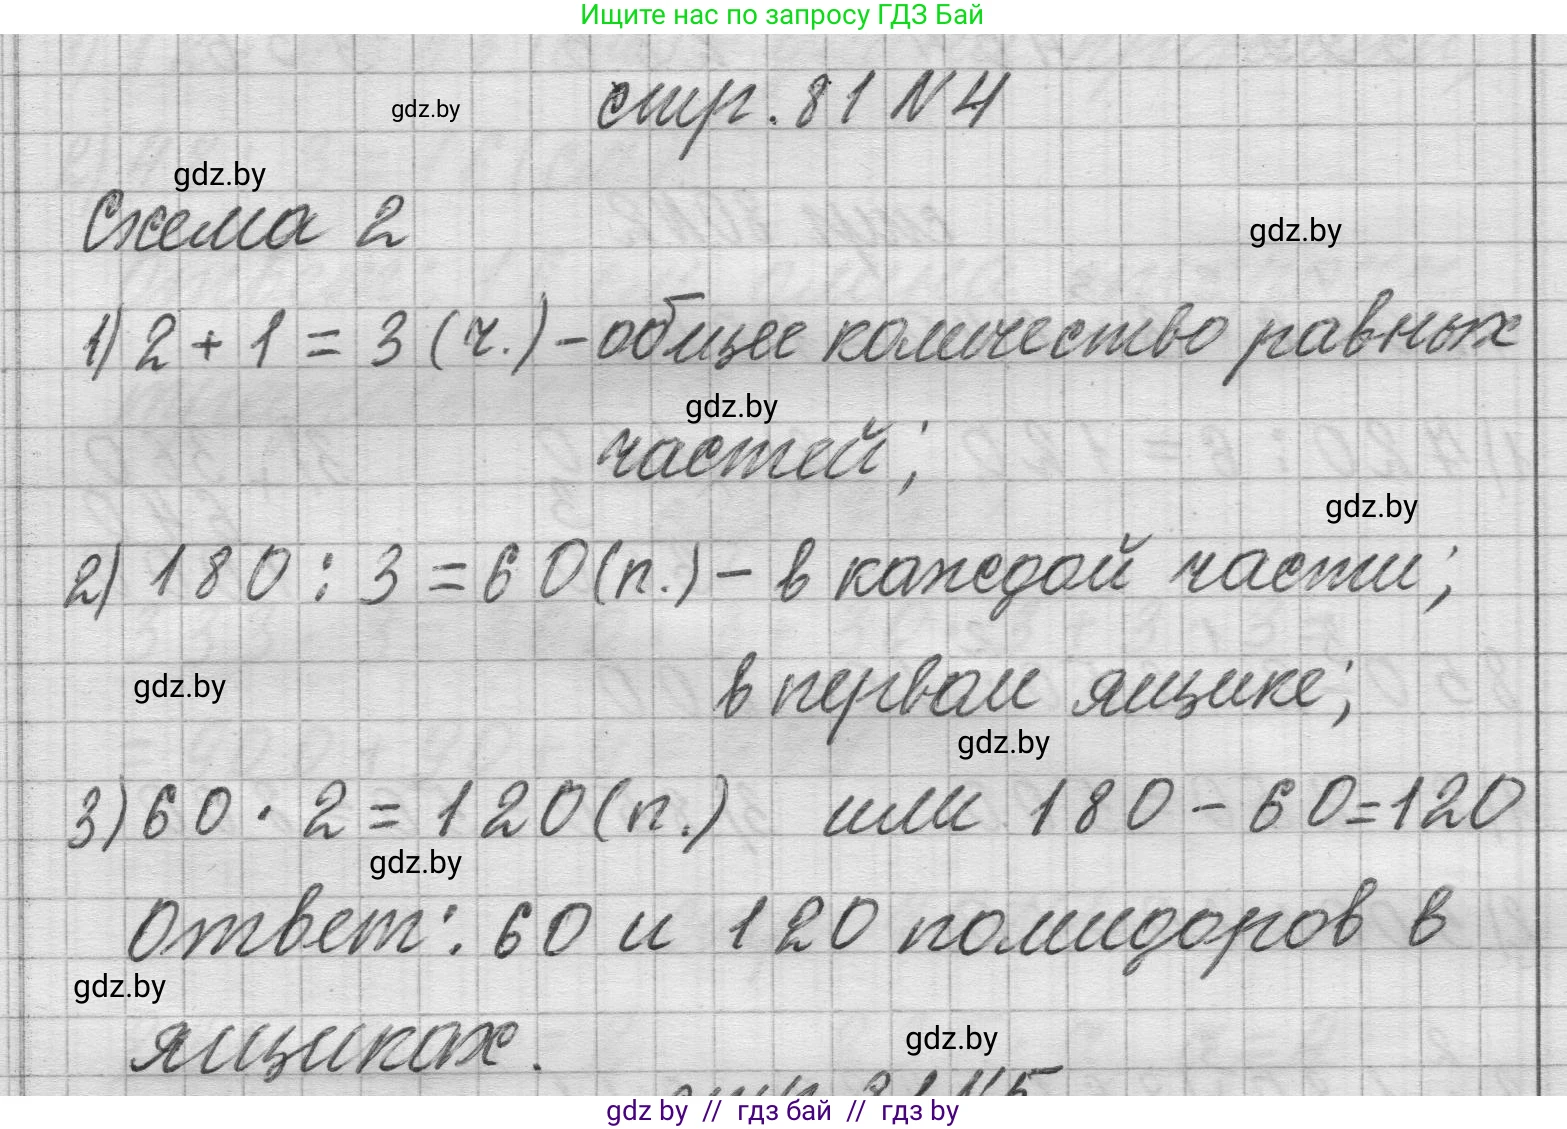 Ищите нас по запросу ГДЗ Бай
стр. 81 N 4
gdz.by
gdz.by
Схема 2
gdz.by
1) 2 + 1 = 3 (ч.) - общее количество равных
gdz.by
частей;
gdz.by
2) 180 : 3 = 60 (п.) - в каждой части;
gdz.by
в первом ящике;
gdz.by
3) 60 · 2 = 120 (п.) или 180 - 60 = 120
gdz.by
Ответ: 60 и 120 помидоров в
gdz.by
ящиках.
gdz.by
стр. 81 N 5
gdz by // гдз бай // гдз by